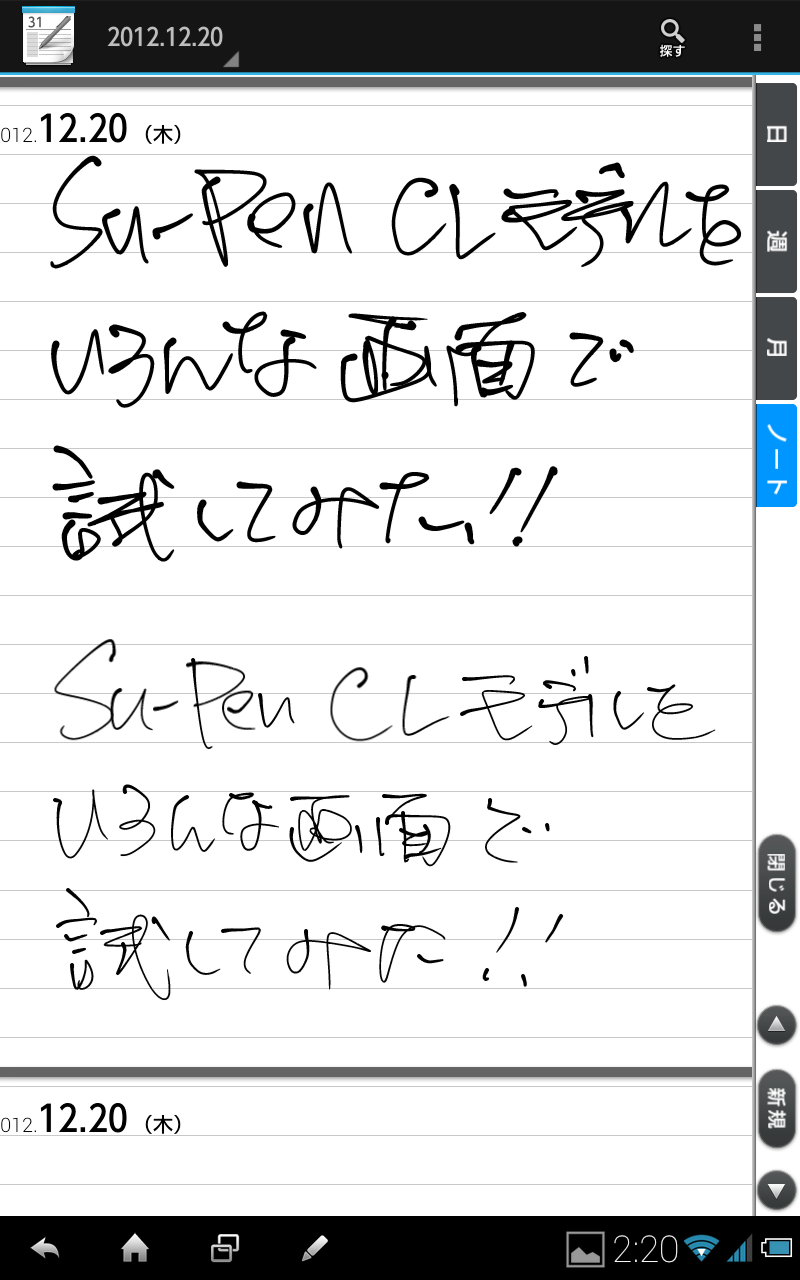 31
2012.12.20
探す
012.12.20（木）
Su-Pen CLモデルを
いろんな画面で
試してみた!!
Su-Pen CLモデルを
いろんな画面で
試してみた!!
012.12.20（木）
日
週
月
ノート
閉じる
新規
2:20